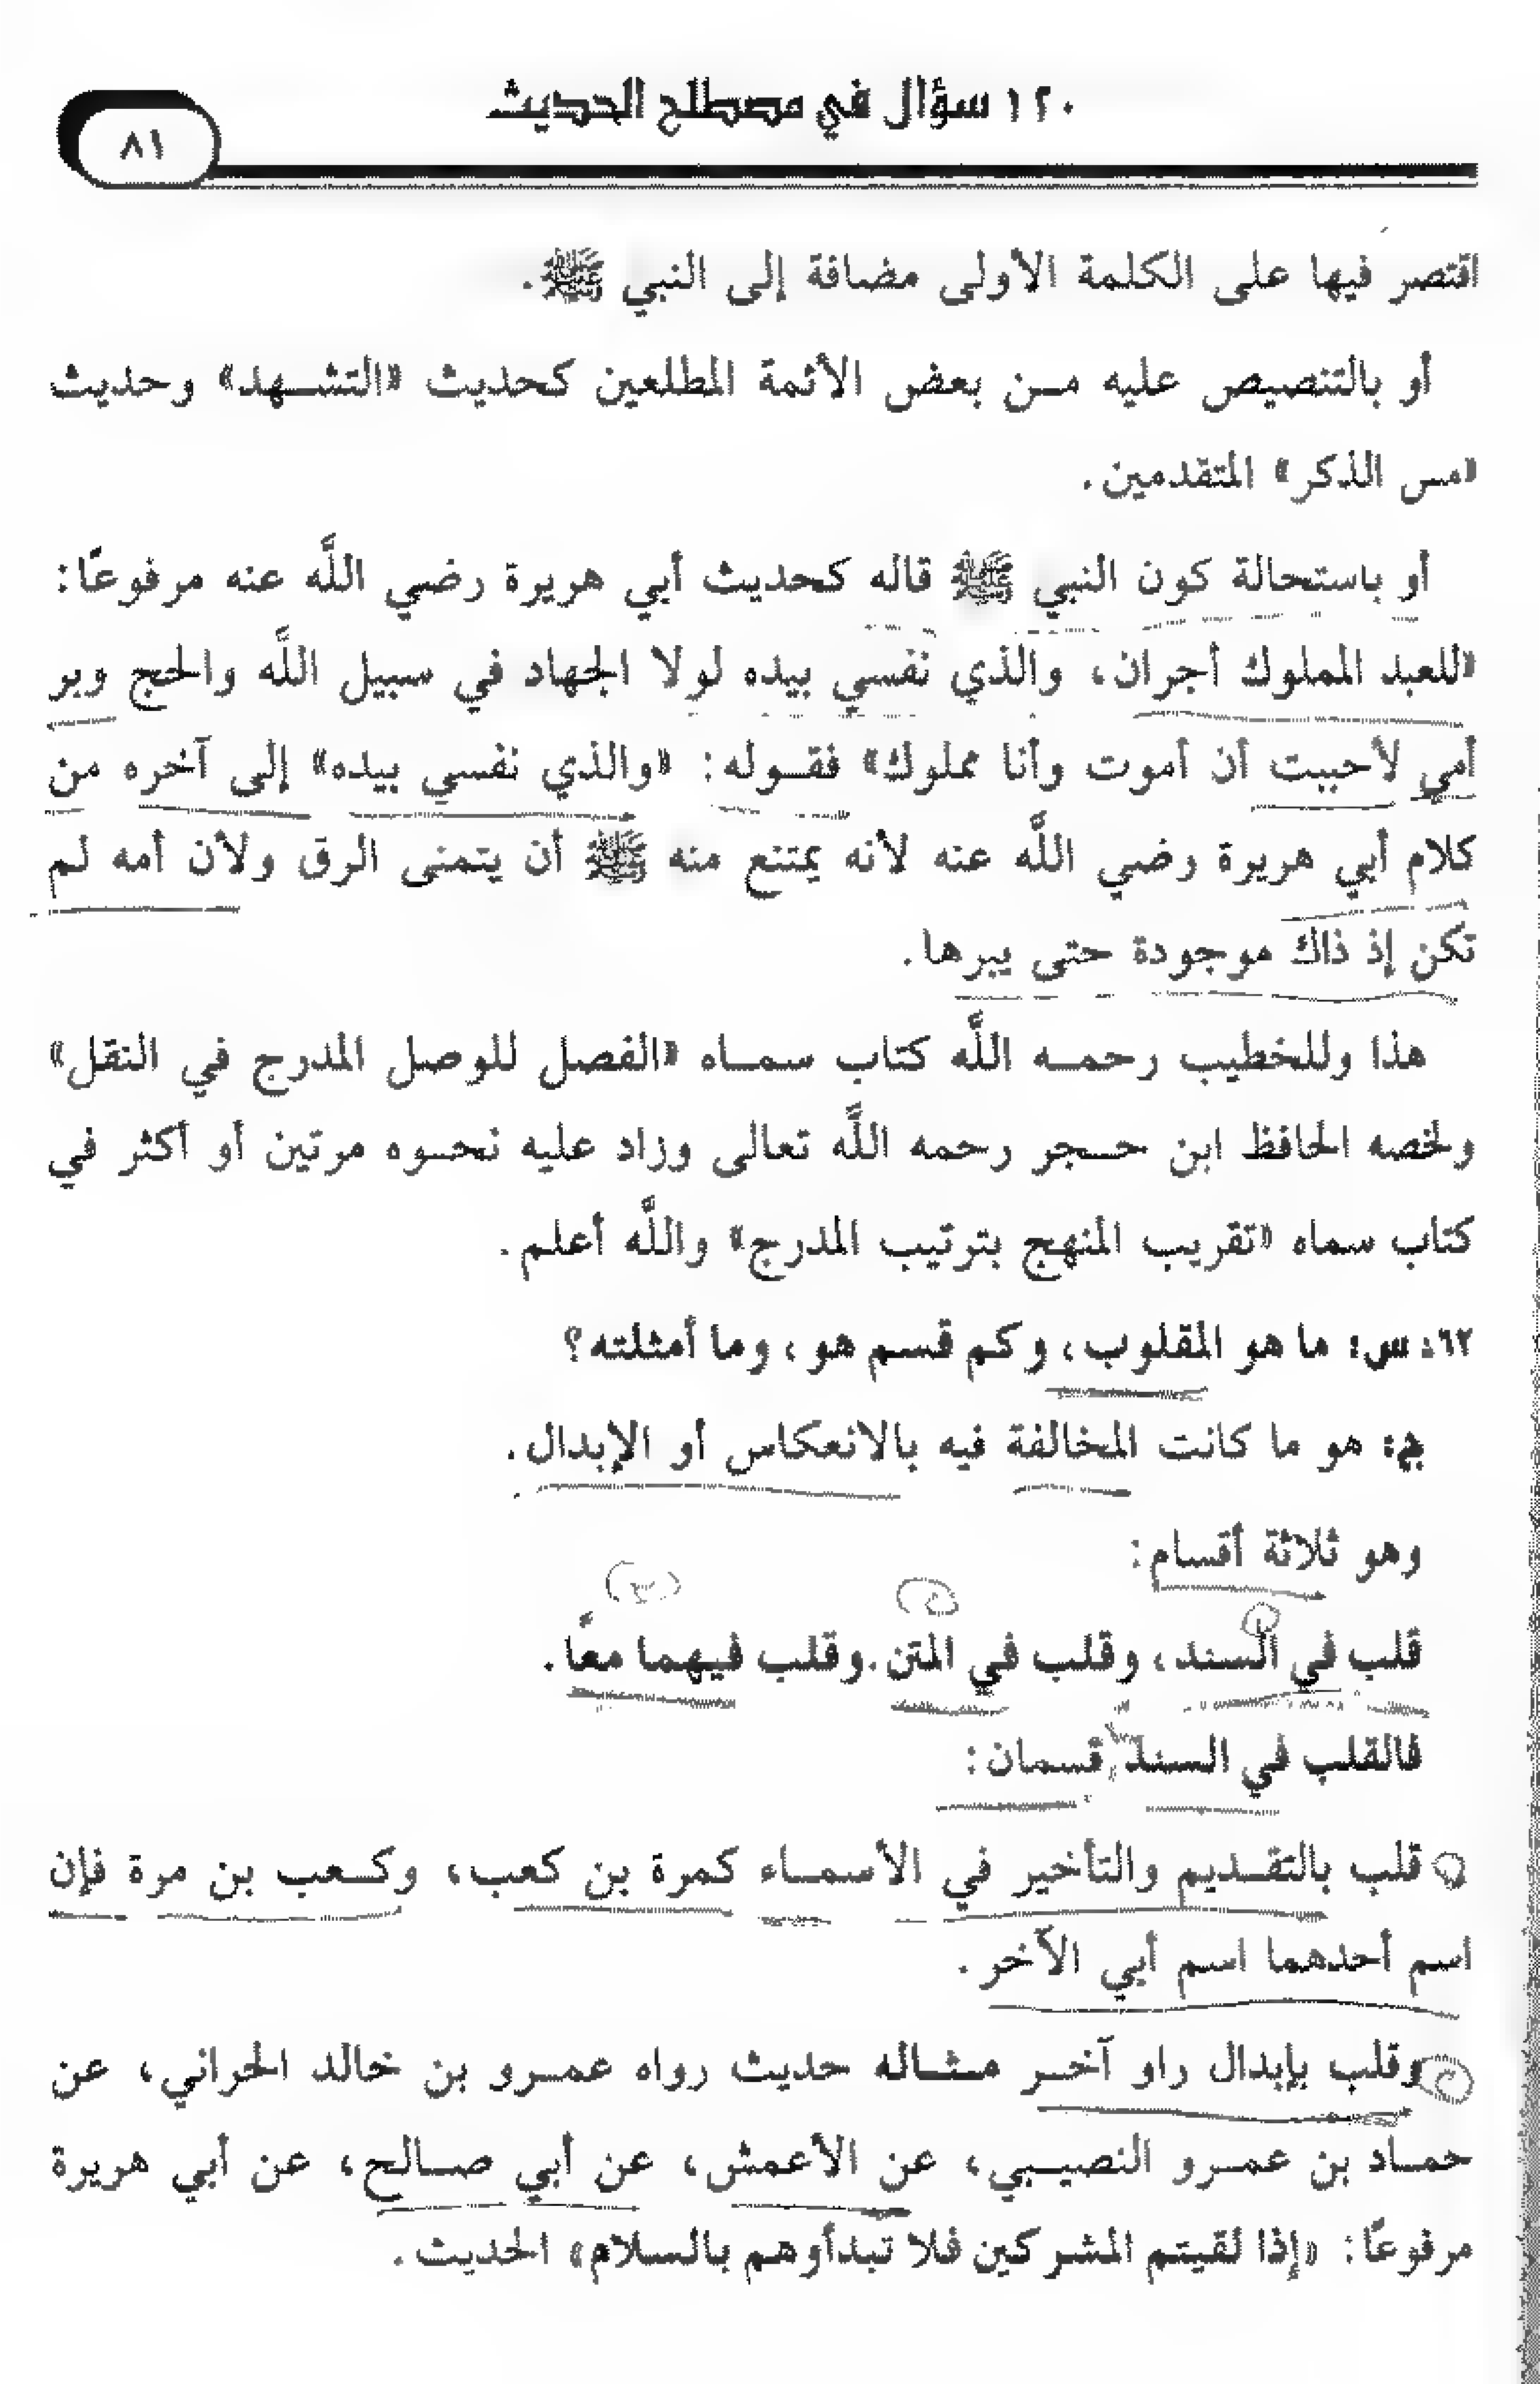 ١٢٠ سؤال في مصطلح الحديث
٨١
اقتصر فيها على الكلمة الأولى مضافة إلى النبي ﷺ.
أو بالتنصيص عليه مـن بعض الأئمة المطلعين كحديث «التشـهد» وحديث
«مس الذكر» المتقدمين.
أو باستحالة كون النبي ﷺ قاله كحديث أبي هريرة رضي اللَّه عنه مرفوعًا:
«للعبد المملوك أجران، والذي نفسي بيده لولا الجهاد في سبيل اللَّه والحج وبر
أمي لأحببت أن أموت وأنا مملوك» فقـوله: «والذي نفسي بيده» إلى آخره من
كلام أبي هريرة رضي اللَّه عنه لأنه يمتنع منه ﷺ أن يتمنى الرق ولأن أمه لم
تكن إذ ذاك موجودة حتى يبرها.
هذا وللخطيب رحمـه اللَّه كتاب سمـاه «الفصل للوصل المدرج في النقل»
ولخصه الحافظ ابن حـجر رحمه اللَّه تعالى وزاد عليه نحـوه مرتين أو أكثر في
كتاب سماه «تقريب المنهج بترتيب المدرج» واللَّه أعلم.
٦٢: س: ما هو المقلوب، وكم قسم هو، وما أمثلته؟
ج: هو ما كانت المخالفة فيه بالانعكاس أو الإبدال.
وهو ثلاثة أقسام:
١ ٢ ٣
قلب في السند، وقلب في المتن.وقلب فيهما معًا.
فالقلب في السند قسمان:
١ قلب بالتقـديم والتأخير في الأسمـاء كمرة بن كعب، وكـعب بن مرة فإن
اسم أحدهما اسم أبي الآخر.
٢ وقلب بإبدال راو آخـر مـثـاله حديث رواه عمـرو بن خالد الحراني، عن
حمـاد بن عمـرو النصيـبي، عن الأعمش، عن أبي صـالح، عن أبي هريرة
مرفوعًا: «إذا لقيتم المشركين فلا تبدأوهم بالسلام» الحديث.